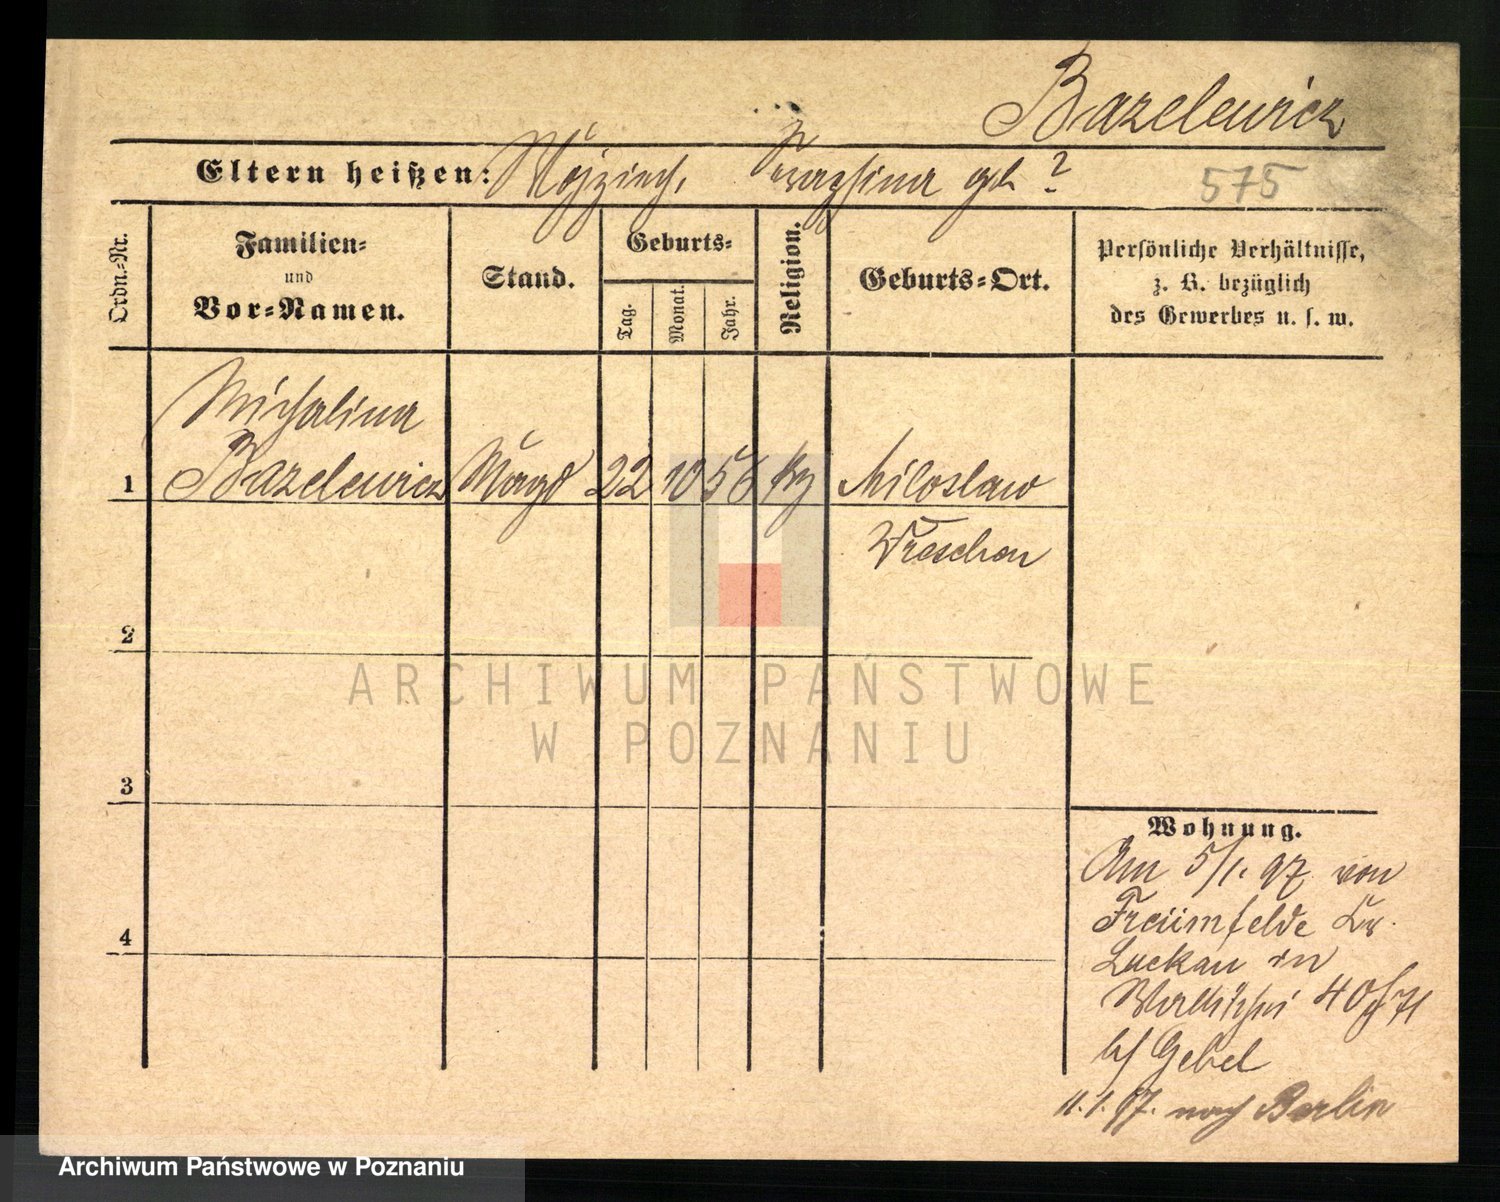 Bazelewicz
Eltern heißen: Wojziech, geb ?
575
Ordn.=Nr.
Familien=
und
Vor=Namen.
Stand.
Geburts=
Tag.
Monat.
Jahr.
Religion.
Geburts=Ort.
Persönliche Verhältnisse,
z. B. bezüglich
des Gewerbes u. s. w.
Michalina
1 Bazelewicz Magd 22 10 56 Miloslaw
Wreschen
2
3
4
Wohnung.
Am 5/1. 97 von
Freiimfelde Kr.
Luckau in
Wallischei 40/71
b/ Gebel
11.1.97. nach Berlin
ARCHIWUM PAŃSTWOWE
W POZNANIU
Archiwum Państwowe w Poznaniu